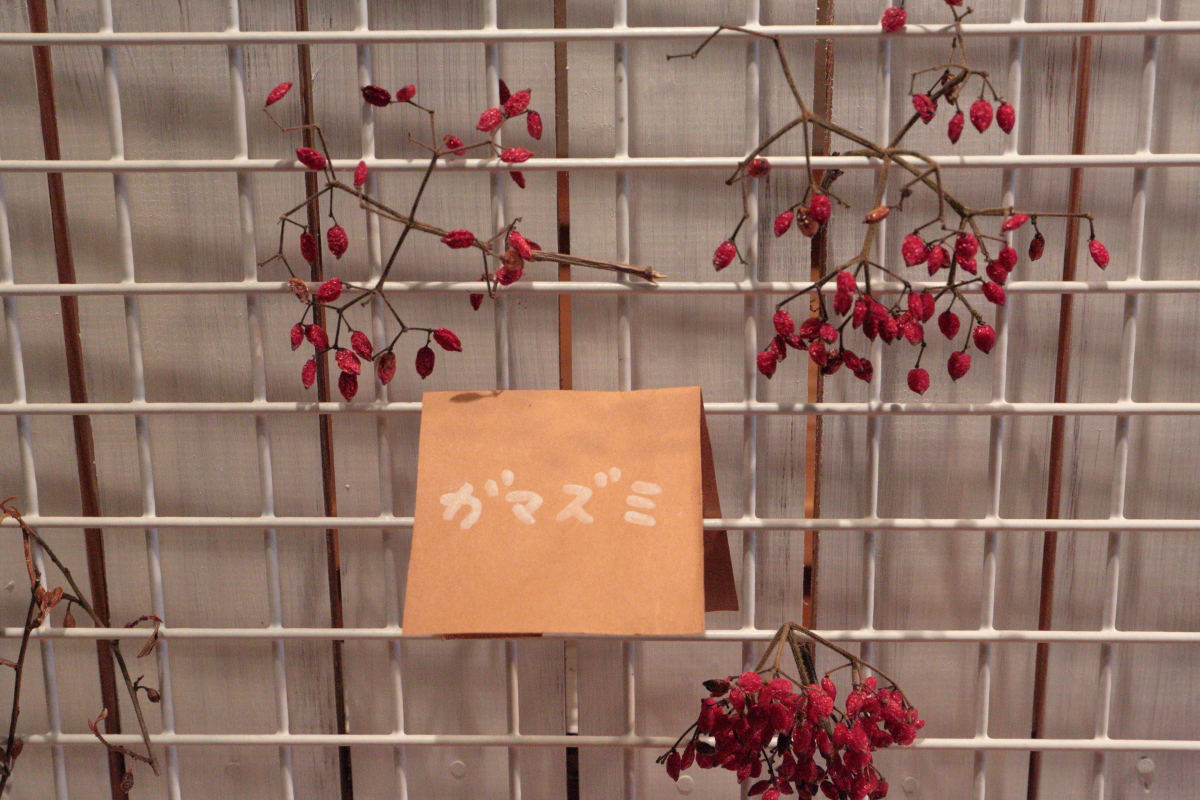 ガマズミ